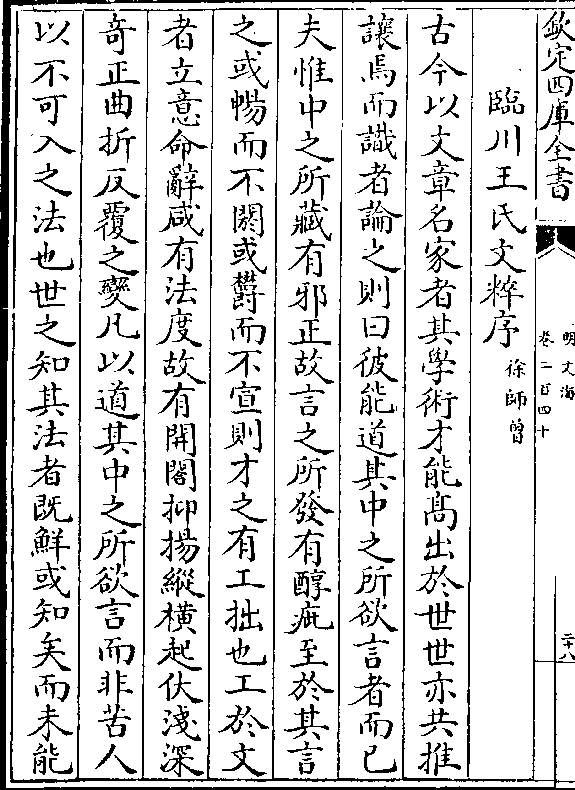 欽定四庫全書
明文海
卷二百四十
二十八
臨川王氏文粹序
徐師曾
古今以文章名家者其學術才能高出於世世亦共推
讓焉而識者論之則曰彼能道其中之所欲言者而已
夫惟中之所藏有邪正故言之所發有醇疵至於其言
之或暢而不閼或欝而不宣則才之有工拙也工於文
者立意命辭咸有法度故有開闔抑揚縱横起伏淺深
竒正曲折反覆之變凡以道其中之所欲言而非苦人
以不可入之法也世之知其法者既鮮或知矣而未能